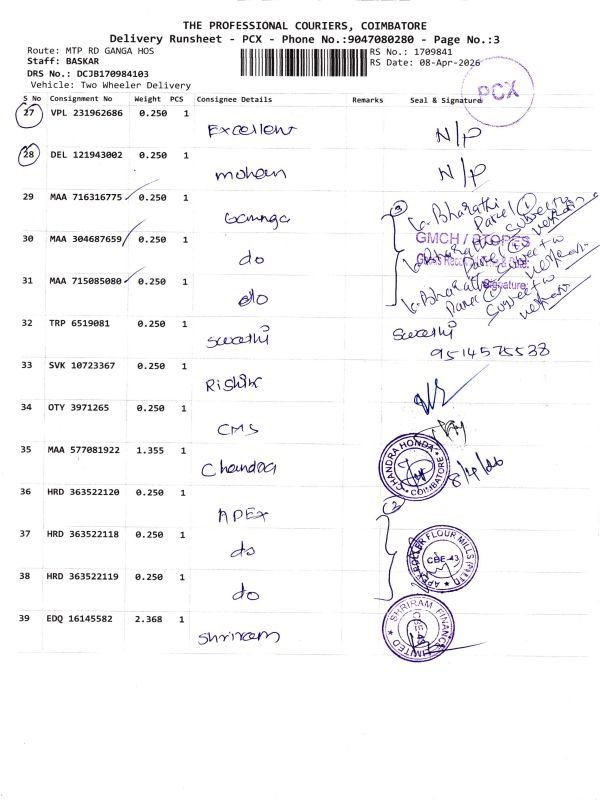 THE PROFESSIONAL COURIERS, COIMBATORE
Delivery Runsheet - PCX - Phone No.:9047080280 - Page No.:3
Route: MTP RD GANGA HOS
RS No.: 1709841
Staff: BASKAR
RS Date: 08-Apr-2026
DRS No.: DCJB170984103
Vehicle: Two Wheeler Delivery
PCX
S No Consignment No Weight PCS Consignee Details Remarks Seal & Signature
27 VPL 231962686 0.250 1 Excellent N/P
28 DEL 121943002 0.250 1 mohan N/P
29 MAA 716316775 0.250 1 Ganga
3
Bharathi
Parcel 1
Subject to
GMCH / STORES
30 MAA 304687659 0.250 1 do
Bharathi
Subject to
31 MAA 715085080 0.250 1 do
Signature:
Bharathi
Subject to
32 TRP 6519081 0.250 1 Swathi Swathi
9514575538
33 SVK 10723367 0.250 1 Rishik
34 OTY 3971265 0.250 1 CMS
35 MAA 577081922 1.355 1 Chandra
CHANDRA HONDA
COIMBATORE
8/4/26
36 HRD 363522120 0.250 1 APEX
37 HRD 363522118 0.250 1 do
ROLLER FLOUR MILLS (P) LTD
CBE-43
38 HRD 363522119 0.250 1 do
39 EDQ 16145582 2.368 1 Shriram
SHRIRAM FINANCE LIMITED